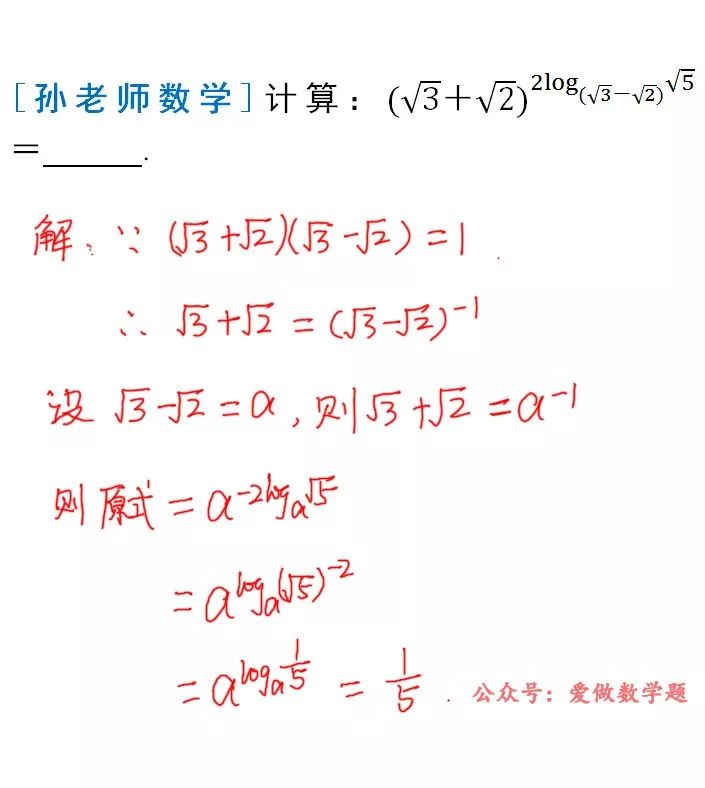 [孙老师数学]计算：(√3＋√2)^{2log_{(√3－√2)}√5}
＝______.
解：∵ (√3+√2)(√3-√2)=1.
∴ √3+√2=(√3-√2)^{-1}
设 √3-√2=a, 则√3+√2=a^{-1}
则原式=a^{-2log_a√5}
=a^{log_a(√5)^{-2}}
=a^{log_a\frac{1}{5}}=\frac{1}{5}.
公众号：爱做数学题